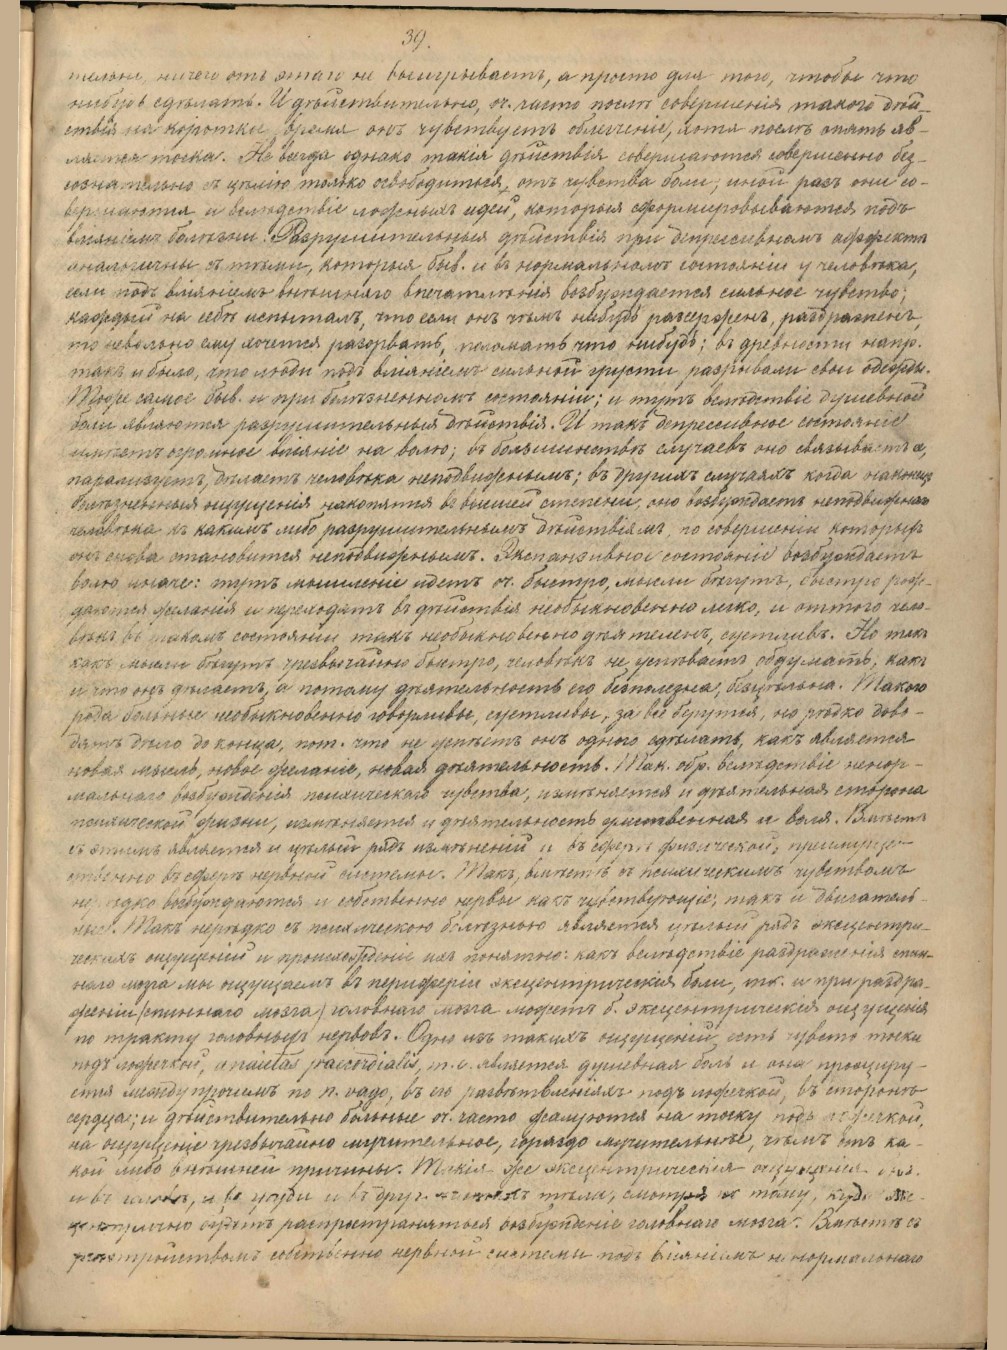 39.
ничего отъ этаго не выигрываетъ, а просто для того, чтобы что
нибудь сдѣлать. И дѣйствительно, оч. часто послѣ совершенія такого дѣй-
ствія на короткое время онъ чувствуетъ облегченіе, хотя послѣ опять яв-
ляется тоска. Не всегда однако такія дѣйствія совершаются совершенно без-
сознательно съ цѣлію только освободиться отъ чувства боли; иной разъ они со-
вершаются и вслѣдствіе ложныхъ идей, которыя сформировываются подъ
вліяніемъ болѣзни. Разрушительныя дѣйствія при депрессивномъ аффектѣ
аналогичны съ тѣми, которыя быв. и въ нормальномъ состояніи у человѣка,
если подъ вліяніемъ внѣшняго впечатлѣнія возбуждается сильное чувство;
каждый на себѣ испыталъ, что если онъ чѣмъ нибудь разсерженъ, раздраженъ,
то невольно ему хочется разорвать, поломать что нибудь; въ древности напр.
такъ и было, что люди подъ вліяніемъ сильной грусти разрывали свои одежды.
Тоже самое быв. и при болѣзненномъ состояніи; и тутъ вслѣдствіе душевной
боли являются разрушительныя дѣйствія. И такъ депрессивное состояніе
имѣетъ огромное вліяніе на волю; въ большинствѣ случаевъ оно связываетъ ее,
парализуетъ, дѣлаетъ человѣка неподвижнымъ; въ другихъ случаяхъ когда наконецъ
болѣзненныя ощущенія накопятся въ высшей степени, оно возбуждаетъ неподвижнаго
человѣка къ какимъ либо разрушительнымъ дѣйствіямъ, по совершеніи которыхъ
онъ снова становится неподвижнымъ. Экспансивное состояніе возбуждаетъ
волю иначе: тутъ мышленіе идетъ оч. быстро, мысли бѣгутъ, быстро рож-
даются желанія и переходятъ въ дѣйствія необыкновенно легко, и оттого чело-
вѣкъ въ такомъ состояніи такъ необыкновенно дѣятеленъ, суетливъ. Но такъ
какъ мысли бѣгутъ чрезвычайно быстро, человѣкъ не успѣваетъ обдумать, какъ
и что онъ дѣлаетъ, а потому дѣятельность его безполезна, безцѣльна. Такого
рода больные необыкновенно говорливы, суетливы, за все берутся, но рѣдко дово-
дятъ дѣло до конца, пот. что не успѣетъ онъ одного сдѣлать, какъ является
новая мысль, новое желаніе, новая дѣятельность. Так. обр. вслѣдствіе ненор-
мальнаго возбужденія психическаго чувства, измѣняется и дѣятельная сторона
психической жизни, измѣняется и дѣятельность умственная и воля. Вмѣстѣ
съ этимъ является и цѣлый рядъ измѣненій и въ сферѣ физической, преимуще-
ственно въ сферѣ нервной системы. Такъ, вмѣстѣ съ психическимъ чувствомъ
нерѣдко возбуждаются и собственно нервы какъ чувствующіе, такъ и двигатель-
ные. Такъ нерѣдко съ психическою болѣзнію является цѣлый рядъ эксцентри-
ческихъ ощущеній и происхожденіе ихъ понятно: какъ вслѣдствіе раздраженія спин-
наго мозга мы ощущаемъ въ периферіи эксцентрическія боли, так. и при раздра-
женіи (спиннаго мозга) головнаго мозга можетъ б. эксцентрическія ощущенія
по тракту головныхъ нервовъ. Одно изъ такихъ ощущеній есть чувство тоски
подъ ложечкой, anxietas praecordialis, т.е. является душевная боль и она проециру-
ется между прочимъ по n. vago, въ его развѣтвленіяхъ подъ ложечкой, въ сторонѣ
сердца; и дѣйствительно больные оч. часто жалуются на тоску подъ ложечкой,
на ощущеніе чрезвычайно мучительное, гораздо мучительнѣе, чѣмъ отъ ка-
кой либо внѣшней причины. Такія же эксцентрическія ощущенія
и въ головѣ, и въ груди и въ друг. частяхъ тѣла, смотря по тому, куда экс-
центрично будетъ распространяться возбужденіе головнаго мозга. Вмѣстѣ съ
разстройствомъ собственно нервной системы подъ вліяніемъ ненормальнаго